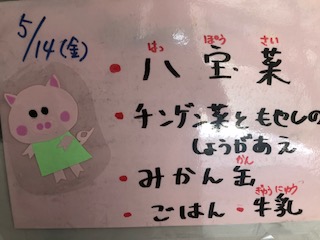 5/14(金)
はっ ぽう さい
・八宝菜
・チンゲン菜ともやしの
しょうがあえ
かん
・みかん缶
ぎゅうにゅう
・ごはん・牛乳